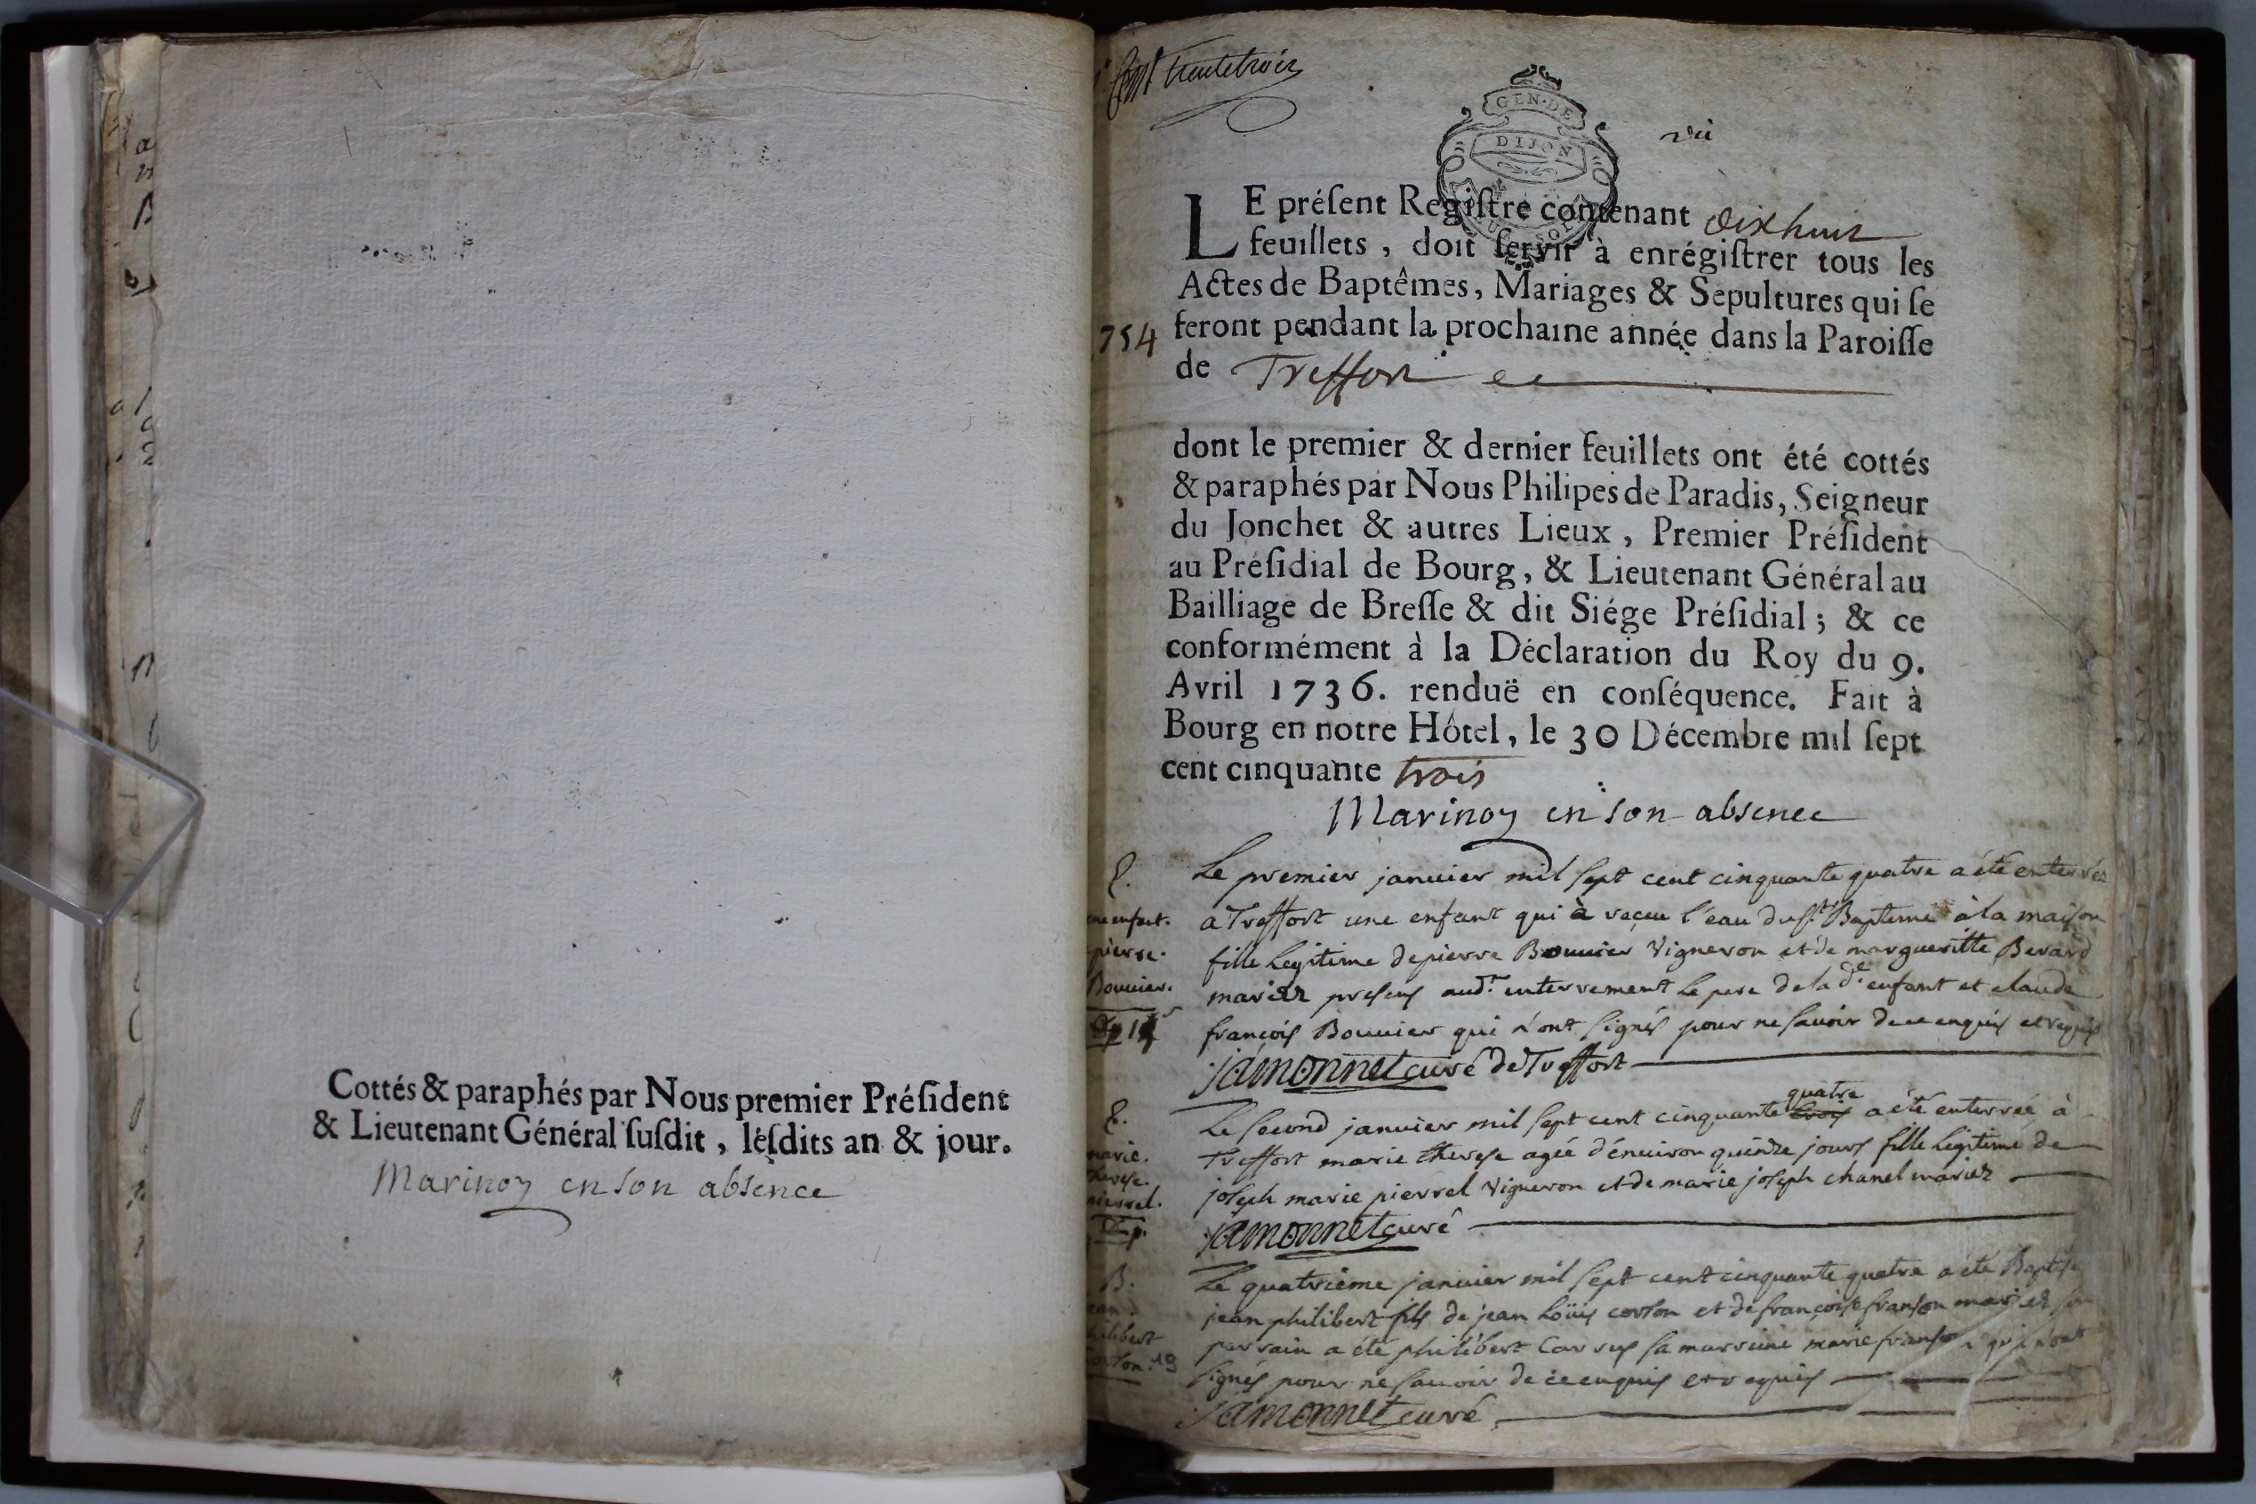 Cottés & paraphés par Nous premier Préſident
& Lieutenant Général ſuſdit, léſdits an & jour.
Marinoy en son absence
Cent trentetrois
GEN·DE
DIJON
vù
LE préſent Regiſtre contenant dixhuit
feuillets, doit ſervir à enrégiſtrer tous les
Actes de Baptêmes, Mariages & Sepultures qui ſe
754 feront pendant la prochaine année dans la Paroiſſe
de Treffort
dont le premier & dernier feuillets ont été cottés
& paraphés par Nous Philipes de Paradis, Seigneur
du Jonchet & autres Lieux, Premier Préſident
au Préſidial de Bourg, & Lieutenant Général au
Bailliage de Breſſe & dit Siége Préſidial; & ce
conformément à la Déclaration du Roy du 9.
Avril 1736. renduë en conſéquence. Fait à
Bourg en notre Hôtel, le 30 Décembre mil ſept
cent cinquante trois
Marinoy en son absence
E. Le premier januier mil sept cent cinquante quatre a été enterrée
une enfant. a Treffort une enfant qui à reçeu l'eau du st. Bapteme à la maison
pierre. fille legitime de pierre Bouuier Vigneron et de margueritte Berard
Bouuier. mariez presens audt. enterrement le pere de la de. enfant et claude
françois Bouuier qui n'ont signés pour ne sauoir de ce enquis et requis
jamonnet curé de Treffort
E. Le second januier mil sept cent cinquante trois quatre a été enterreé à
marie. Treffort marie therese ageé d'enuiron quinze jours fille legitime de
therese. joseph marie pierrel vigneron et de marie joseph chanel mariez
pierrel. jamonnet curé
B. Le quatrième januier mil sept cent cinquante quatre a été Baptisé
jean. jean philibert fils de jean loüis corton et de françoise franson mariez son
philibert parrain a été philibert Carrus sa marreine marie franson qui n'ont
corton. 19 signés pour ne sauoir de ce enquis et requis
jamonnet curé